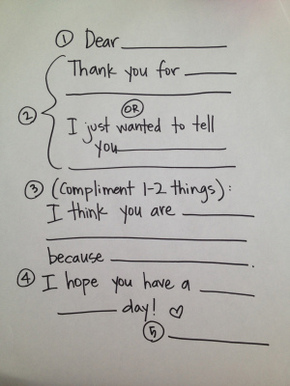 ① Dear ____________
Thank you for ______
____________________
OR
② I just wanted to tell
you____________
____________________
③ (Compliment 1-2 things):
I think you are ________
____________________
because ______________.
④ I hope you have a ______
______ day! ♡
⑤ ____________